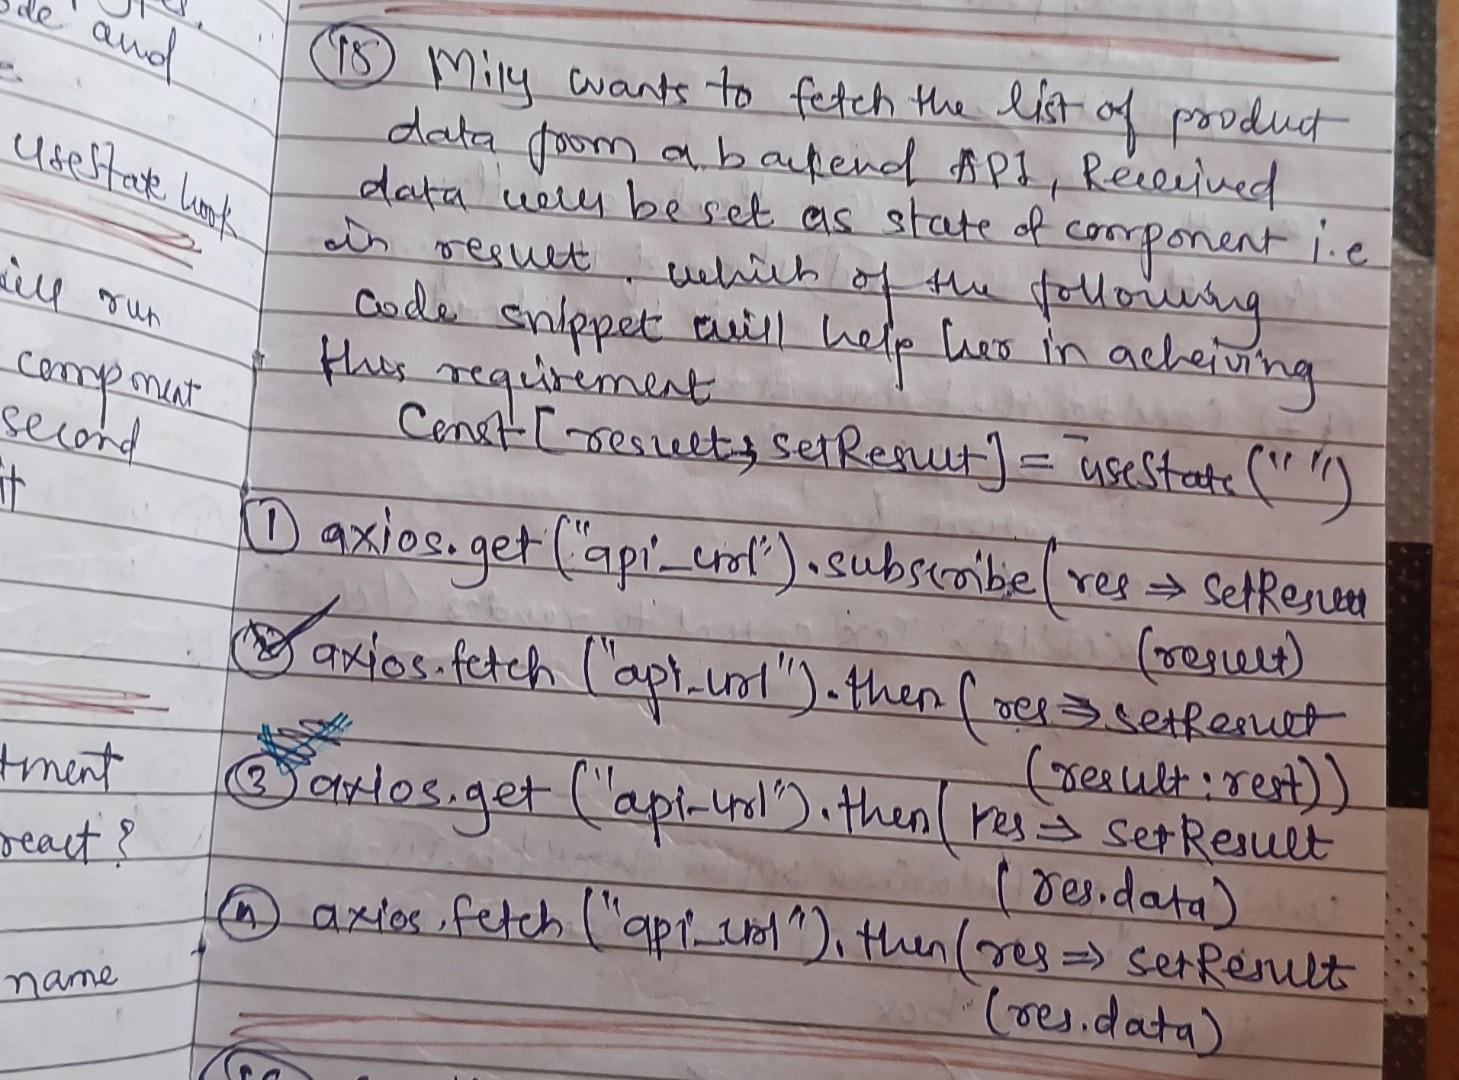 ode and
useState hook
will run
component
second
it
tment
react ?
name
18 Mily wants to fetch the list of product
data from a backend API, Received
data will be set as state of component i.e
in result. which of the following
code snippet will help her in acheiving
this requirement
Const [result, setResult] = useState("")
1 axios.get("api_url").subscribe(res => setResult
(result)
2 axios.fetch ("api_url").then(res => setResult
(result : rest))
3 axios.get ("api_url").then(res => setResult
(res.data)
4 axios.fetch ("api_url").then(res => setResult
(res.data)